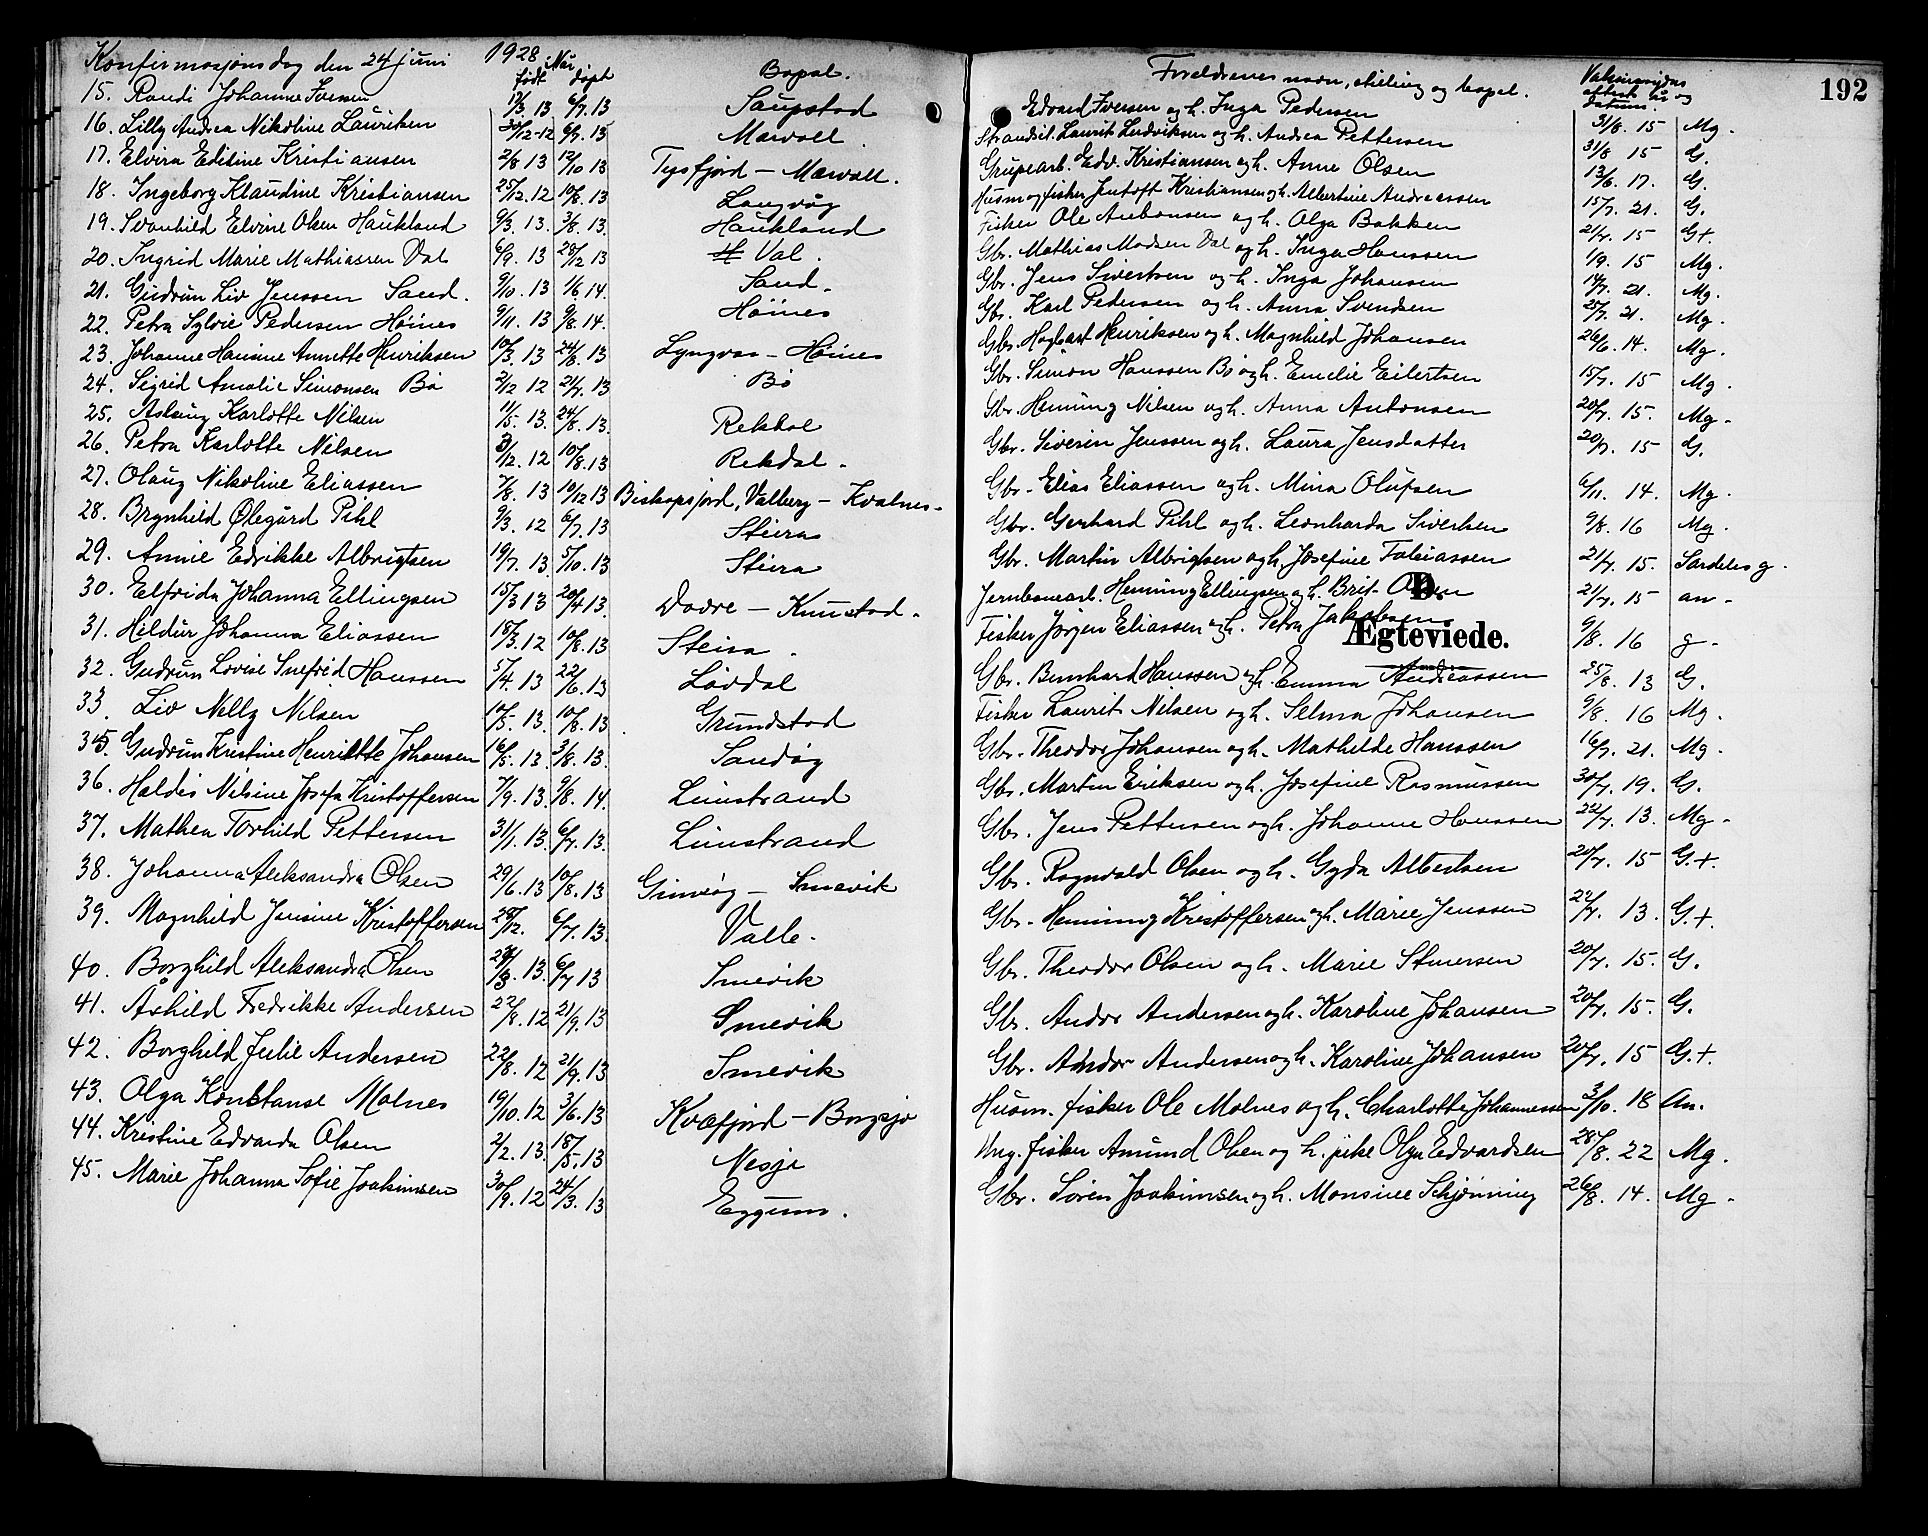 Konfirmasjonsdag den 24 juni 1928 Når
født døpt Bopæl.
15. Randi Johanne Iversen 12/3 13 6/7 13 Saupstad
16. Lilly Andrea Nikoline Lauritsen 30/12-12 6/7. 13 Mærvoll
17. Elvira Edisine Kristiansen 2/8 13 12/10 13 Tysfjord — Mærvoll.
18. Ingeborg Klaudine Kristiansen 25/12. 12 10/8. 13 Langvåg
19. Svanhild Elvine Olsen Haukland 9/3. 13. 3/8. 13. Haukland
20. Ingrid Marie Mathiassen Val 6/9. 13 28/12 13 Val.
21. Gudrun Liv Jenssen Sand. 9/10. 13 1/6 14. Sand.
22. Petra Sylvie Pedersen Høines 9/11. 13 9/8. 14. Høines
23. Johanne Hansine Annette Henriksen 10/3. 13 24/8. 13 Lyngvær — Høines
24. Sigrid Amalie Simonsen Bø 2/12 12 21/7. 13 Bø
25. Aslaug Karlotte Nilsen 11/5. 13. 24/8. 13. Rekdal
26. Petra Karlotte Nilsen 3/12. 12 10/8. 13 Rekdal.
27. Olaug Nikoline Eliassen 7/8. 13 10/12 13 Biskopsfjord, Valberg — Kvalnes.
28. Brynhild Ølegård Pihl 9/3. 12 6/7. 13 Steira
29. Annie Edrikke Albrigtsen 19/7. 13 5/10. 13 Steira
30. Elfrida Johanna Ellingsen 15/3 13 20/4 13. Dovre — Knutstad.
31. Hildur Johanna Eliassen 18/3. 12 10/8. 13 Steira.
32. Gudrun Lovise Snefrid Hanssen 5/4. 13 22/6. 13 Løvdal
33. Liv Nelly Nilsen 10/5. 13. 10/8. 13. Grundstad
35. Gudrun Kristine Henriette Johansen 16/5. 13. 3/8. 13. Sandøy
36. Haldis Nilsine Josefa Kristoffersen 7/9. 13. 9/8. 14. Limstrand
37. Mathea Torhild Pettersen 31/1. 13. 6/7. 13. Limstrand
38. Johanna Aleksandra Olsen 29/6. 13 10/8. 13 Gimsøy — Smevik
39. Magnhild Jensine Kristoffersen 28/12. 6/7. 13. Valle.
40. Borghild Aleksandra Olsen 13. 6/7 13 Smevik
41. Åshild Fredrikke Andersen 22/8. 12 21/9. 13 Smevik
42. Borghild Julie Andersen 22/8. 12 21/9. 13 Smevik
43. Olga Konstanse Molnes 19/10. 12 3/6. 13 Kvæfjord — Borgsjo
44. Kristine Edvarda Olsen 2/2. 13. 18/5. 13 Nesje
45. Marie Johanna Sofie Joakimsen 30/9. 12 24/3. 13 Eggum.
192
Foreldrenes navn, stilling og bopæl. Vaksinasjonsattest og datum.
Edvard Iversen og h. Inga Pedersen 31/8. 15 Mg.
Strandsit. Laurit Ludviksen og h. Andrea Pettersen 31/8 15 G.
Grupearb. Edv. Kristiansen og h. Anne Olsen 13/6. 17. G.
Husm og fisker Jentoft Kristiansen og h. Albertine Andreassen 15/7. 21. G.
Fisker Ole Anbonsen og h. Olga Bakken 21/7. 15 G+.
Gbr. Mathias Madsen Val og h. Inga Hanssen 1/9. 15 Mg.
Gbr. Jens Sivertsen og h. Inga Johansen 14/7. 21. Mg.
Gbr. Karl Pedersen og h. Anna Svendsen 25/7. 21. Mg.
Gbr. Hagbart Henriksen og h. Magnhild Johansen 26/6. 14. Mg.
Gbr. Simon Hanssen Bø og h. Emelie Eilertsen 15/7. 15 Mg.
Gbr. Heming Nilsen og h. Anna Antonsen 20/7. 15. Mg.
Gbr. Siverin Jenssen og h. Laura Jensdatter 20/7. 15 G.
Gbr. Elias Eliassen og h. Mina Olufsen 6/11. 14. Mg.
Gbr. Gerhard Pihl og h. Leonharda Sivertsen 9/8. 16 Mg.
Gbr. Martin Albrigtsen og h. Josefine Tobiassen 21/7. 15. Særdeles g.
Jernbanearb. Henning Ellingsen og h. Brit Olsen 21/7. 15 an.
D.
Fisker Jørgen Eliassen og h. Petra Jakobsen 9/8. 16 g.
Ægteviede.
Gbr. Bernhard Hanssen og h. Emma Andreassen 25/8. 13 G.
Fisker Laurit Nilsen og h. Selma Johansen 9/8. 16 Mg.
Gbr. Theodor Johansen og h. Mathilde Hanssen 16/7. 21. Mg.
Gbr. Martin Eriksen og h. Josefine Rasmussen 30/7. 19. G.
Gbr. Jens Pettersen og h. Johanne Hanssen 22/7. 13. Mg.
Gbr. Ragnvald Olsen og h. Gyda Albertsen 20/7. 15 G.+.
Gbr. Henning Kristoffersen og h. Marie Jenssen 22/7. 13. G.+.
Gbr. Theodor Olsen og h. Marie Stmersen 20/7. 15. G.
Gbr. Andor Andersen og h. Karoline Johansen 20/7. 15. G.
Gbr. Andor Andersen og h. Karoline Johansen 20/7. 15 G.+.
Husm. fisker Ole Molnes og h. Charlotte Johannessen 3/10. 18 An.
Ung. fisker Amund Olsen og h. pike Olga Edvardsen 28/8. 22 Mg.
Gbr. Søren Joakimsen og h. Monsine Schjønning 26/8. 14. Mg.